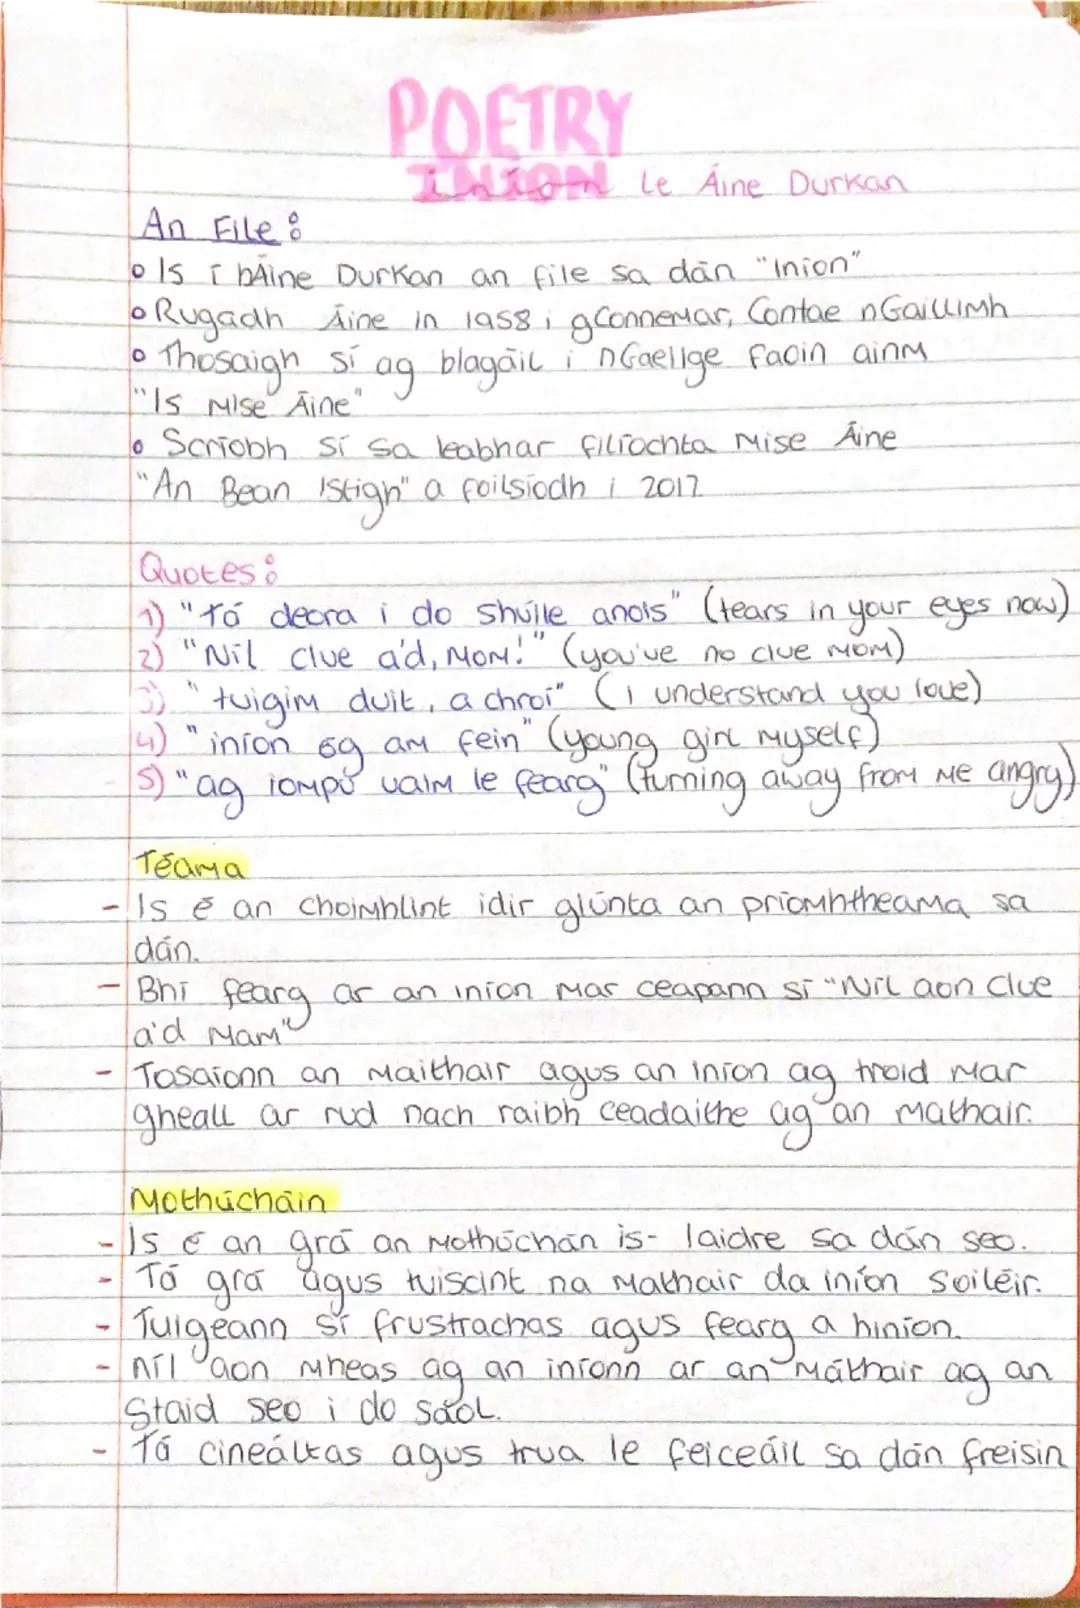 POETRY
INION le Áine Durkan
An File:
Is í bÁine Durkan an file sa dán "Inion"
Rugadh Áine in 1958 i gConnemar, Contae nGaillimh
Thosaigh sí ag blagáil i nGaeilge faoin ainm
"Is Mise Áine"
Scríobh sí sa leabhar filíochta Mise Áine
"An Bean Istigh" a foilsíodh i 2017
Quotes:
1) "tá deora i do shúile anois" (tears in your eyes now)
2) "Níl clue a'd, Mom!" (you've no clue mom)
3) "tuigim duit, a chroí" (I understand you love)
4) "iníon óg am fein" (young girl myself)
5) "ag iompú uaim le fearg" (turning away from me angry)
Téama
- Is é an choimhlint idir glúnta an príomhtheama sa
dán.
- Bhí fearg ar an iníon mar ceapann sí "Níl aon clue
a'd Mam"
- Tosaíonn an maithair agus an iníon ag troid mar
gheall ar rud nach raibh ceadaithe ag an mathair.
Mothúcháin
- Is é an grá an mothúchán is- laidre sa dán seo.
- Tá grá agus tuiscint na mathair da iníon soiléir.
- Tuigeann sí frustrachas agus fearg a hiníon.
- níl aon mheas ag an iníonn ar an máthair ag an
staid seo i do saol.
- Tá cineáltas agus trua le feiceáil sa dán freisin